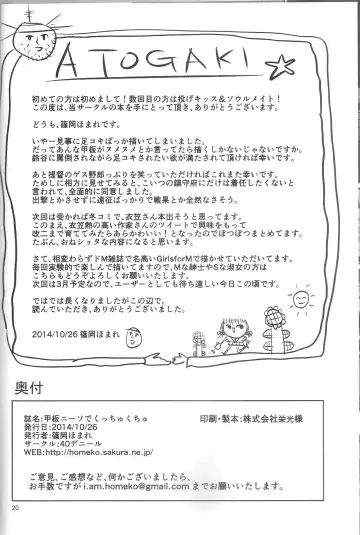 ATOGAKI
初めての方は初めまして！数回目の方は投げキッス＆ソウルメイト！
この度は、当サークルの本を手にとって頂き、ありがとうございます。
どうも、篠岡ほまれです。
いやー見事に足コキばっか描いてしまいました。
だってあんな甲板がヌメヌメとか言ってたら描くしかないじゃないですか。
鈴谷に罵倒されながら足コキされたい欲が満たされて頂ければ幸いです。
あと提督のゲス野郎っぷりを笑ってくれいただければこれまた幸いです。
ためしに相方に見せてみると、こいつの鎮守府にだけは着任したくないと
言われて、全面的に同意しました。
出撃とかさせずに遠征ばっかりで戦果とか全然なさそう。
次回は受かれば冬コミで、衣笠さん本出そうと思ってます。
このまえ、衣笠熱の高い作家さんのツイートで興味をもって
改二まで育ててみたらあらかわいい！となったのでぼつぼつまとめてます。
たぶん、おねショタな内容になると思います。
さて、相変わらずドM雑誌で名高いGirlsforMで描かせていただいてます。
毎回実験的で楽しんで描いてますので、Mな紳士やSな淑女の方は
こちらもどうぞよろしくお願いいたします。
次回は3月予定なので、ユーザーとしても待ち遠しい今日この頃です。
ではでは長くなりましたがこの辺で。
読んでいただき、ありがとうございました。
2014/10/26 篠岡ほまれ
奥付
誌名:甲板ニーソでくっちゅくちゅ
印刷・製本：株式会社栄光様
発行日:2014/10/26
発行者:篠岡ほまれ
サークル:40デニール
WEB:http://homeko.sakura.ne.jp/
ご意見、ご感想など、何かございましたら、
お手数ですが i.am.homeko@gmail.com までお願いいたします。
20